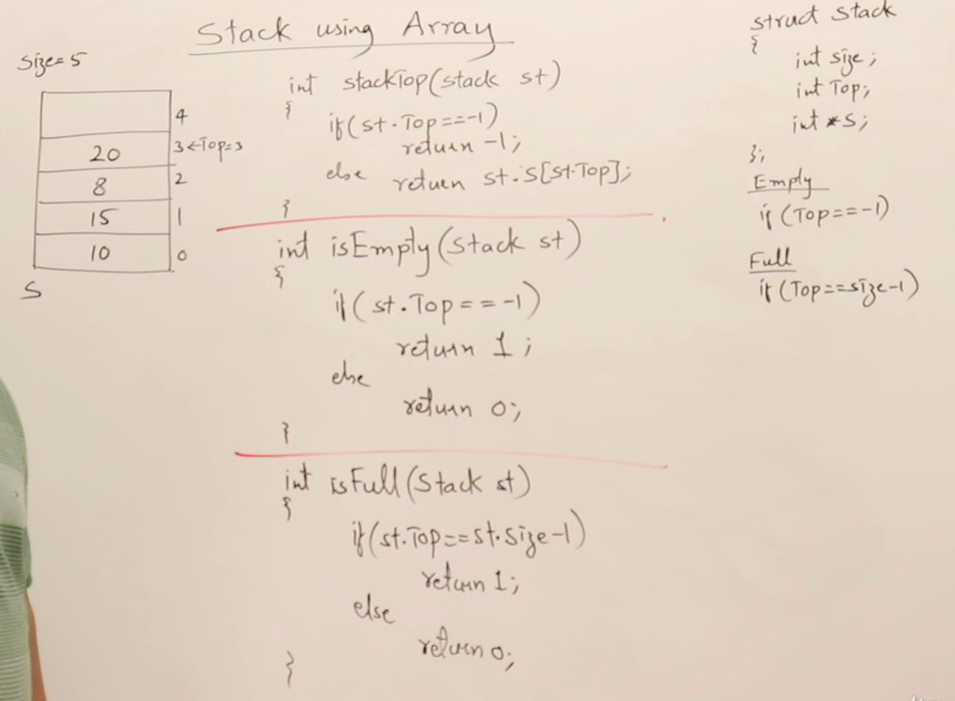 Stack using Array
size=5
4
20 3←Top=3
8 2
15 1
10 0
S
int stackTop(stack st)
{
if(st.Top==-1)
return -1;
else return st.S[st.Top];
}
int isEmpty(Stack st)
{
if(st.Top==-1)
return 1;
else
return 0;
}
int isFull(Stack st)
{
if(st.Top==st.size-1)
return 1;
else
return 0;
}
struct Stack
{
int size;
int Top;
int *S;
};
Empty
if(Top==-1)
Full
if(Top==size-1)